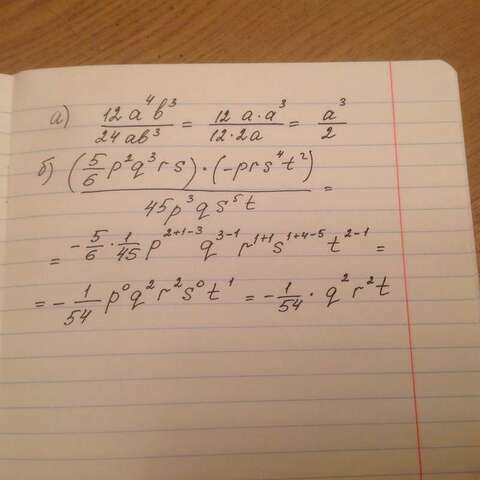 а) 12a⁴b³/24ab³ = 12a·a³/12·2a = a³/2
б) (5/6 p²q³rs)·(-prs⁴t²)/45p³qs⁵t =
= -5/6 · 1/45 p²⁺¹⁻³ q³⁻¹ r¹⁺¹ s¹⁺⁴⁻⁵ t²⁻¹ =
= -1/54 p⁰q²r²s⁰t¹ = -1/54 · q²r²t